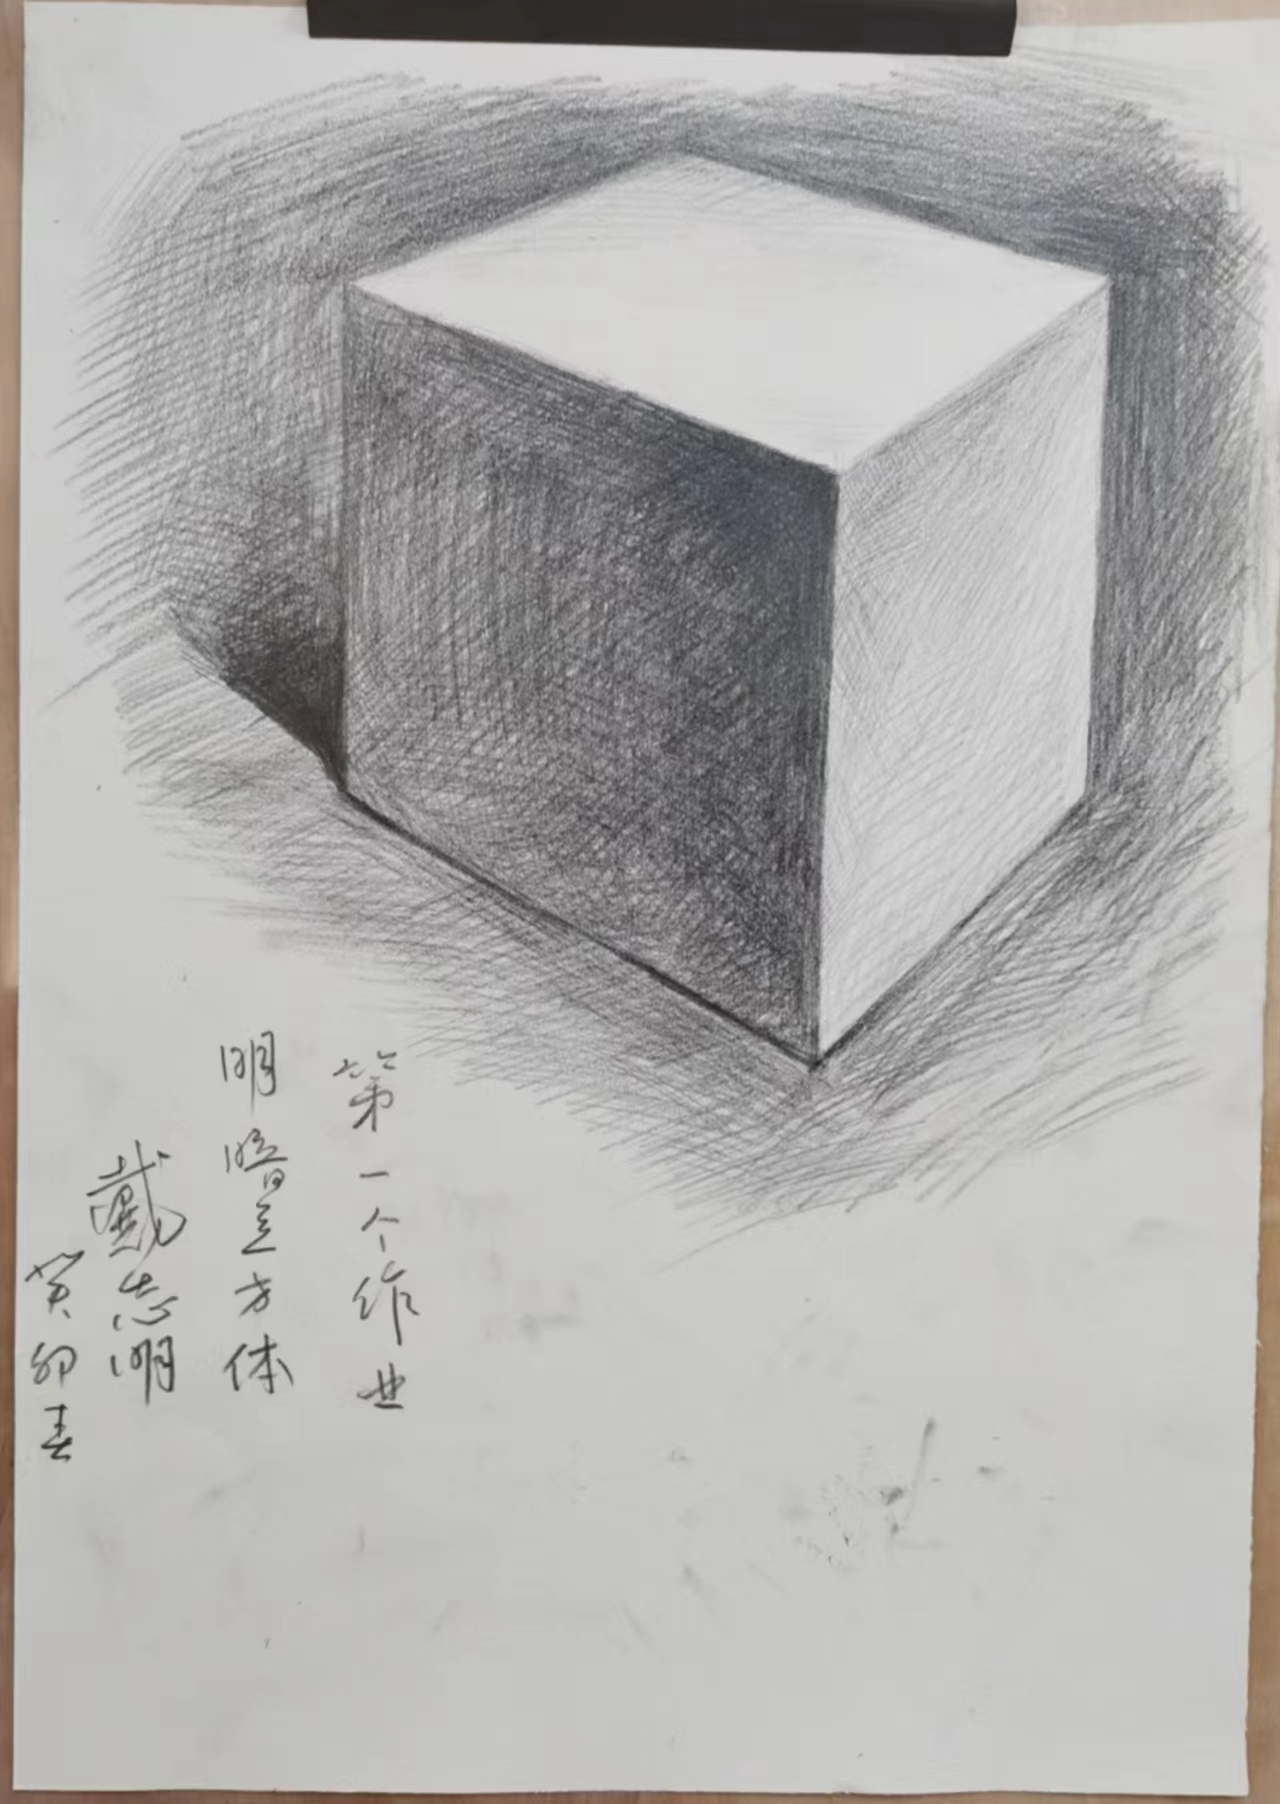 第一个作业
明暗立方体
戴志明
癸卯春